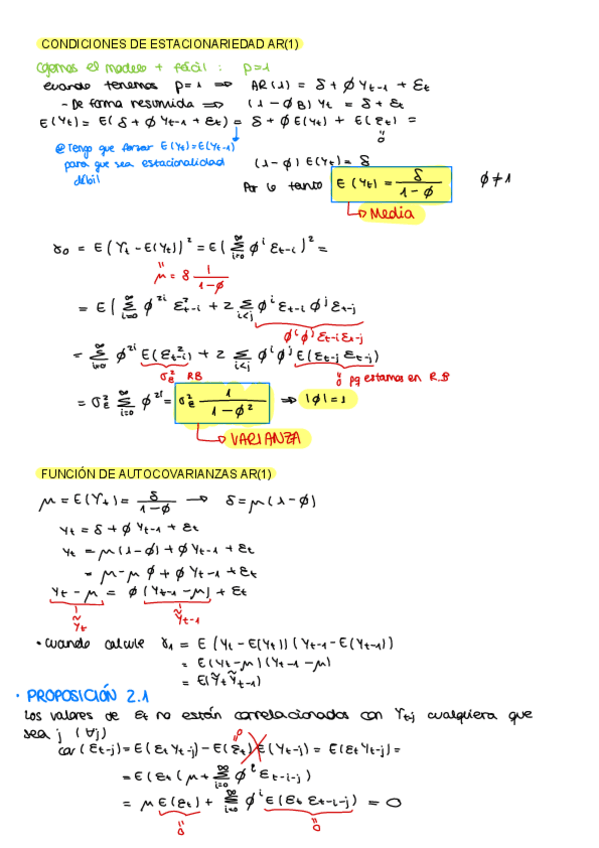 CONDICIONES DE ESTACIONARIEDAD AR(1)
Cogemos el modelo + fácil : p=1
cuando tenemos p=1 ⟹ AR(1) = δ + φ Yt-1 + εt
- De forma resumida ⟹ (1 - φB) Yt = δ + εt
E(Yt) = E(δ + φ Yt-1 + εt) = δ + φ E(Yt) + E(εt) =
0
@ Tengo que forzar E(Yt)=E(Yt-1)
para que sea estacionalidad
débil
(1 - φ) E(Yt) = δ
Por lo tanto E(Yt) = δ / 1 - φ   φ ≠ 1
Media
γ0 = E(Yt - E(Yt))² = E(∑ i=0 ∞ φ^i εt-i)² =
μ = δ 1 / 1-φ
= E(∑ i=0 ∞ φ^2i ε²t-i + 2 ∑ i<j φ^i εt-i φ^j εt-j
φ^i φ^j εt-i εt-j
= ∑ i=0 ∞ φ^2i E(ε²t-i) + 2 ∑ i<j φ^i φ^j E(εt-j εt-j)
σ²ε RB   0 pq estamos en R.B
= σ²ε ∑ i=0 ∞ φ^2i = σ²ε 1 / 1 - φ² ⟹ |φ|=1
VARIANZA
FUNCIÓN DE AUTOCOVARIANZAS AR(1)
μ = E(Yt) = δ / 1-φ → δ = μ(1-φ)
Yt = δ + φ Yt-1 + εt
Yt = μ(1-φ) + φ Yt-1 + εt
= μ - μ φ + φ Yt-1 + εt
Yt - μ = φ (Yt-1 - μ) + εt
Ỹt   Ỹt-1
• cuando calcule γ1 = E (Yt - E(Yt)) (Yt-1 - E(Yt-1))
= E(Yt-μ) (Yt-1 - μ)
= E(Ỹt Ỹt-1)
• PROPOSICIÓN 2.1
Los valores de εt no están correlacionados con Yt-j cualquiera que
sea j (∀j)
cov(εt-j) = E(εt Yt-j) - E(εt) E(Yt-j) = E(εt Yt-j) =
0
= E(εt (μ + ∑ i=0 ∞ φ^i εt-i-j)
= μ E(εt) + ∑ i=0 ∞ φ^i E(εt εt-i-j) = 0
0   0